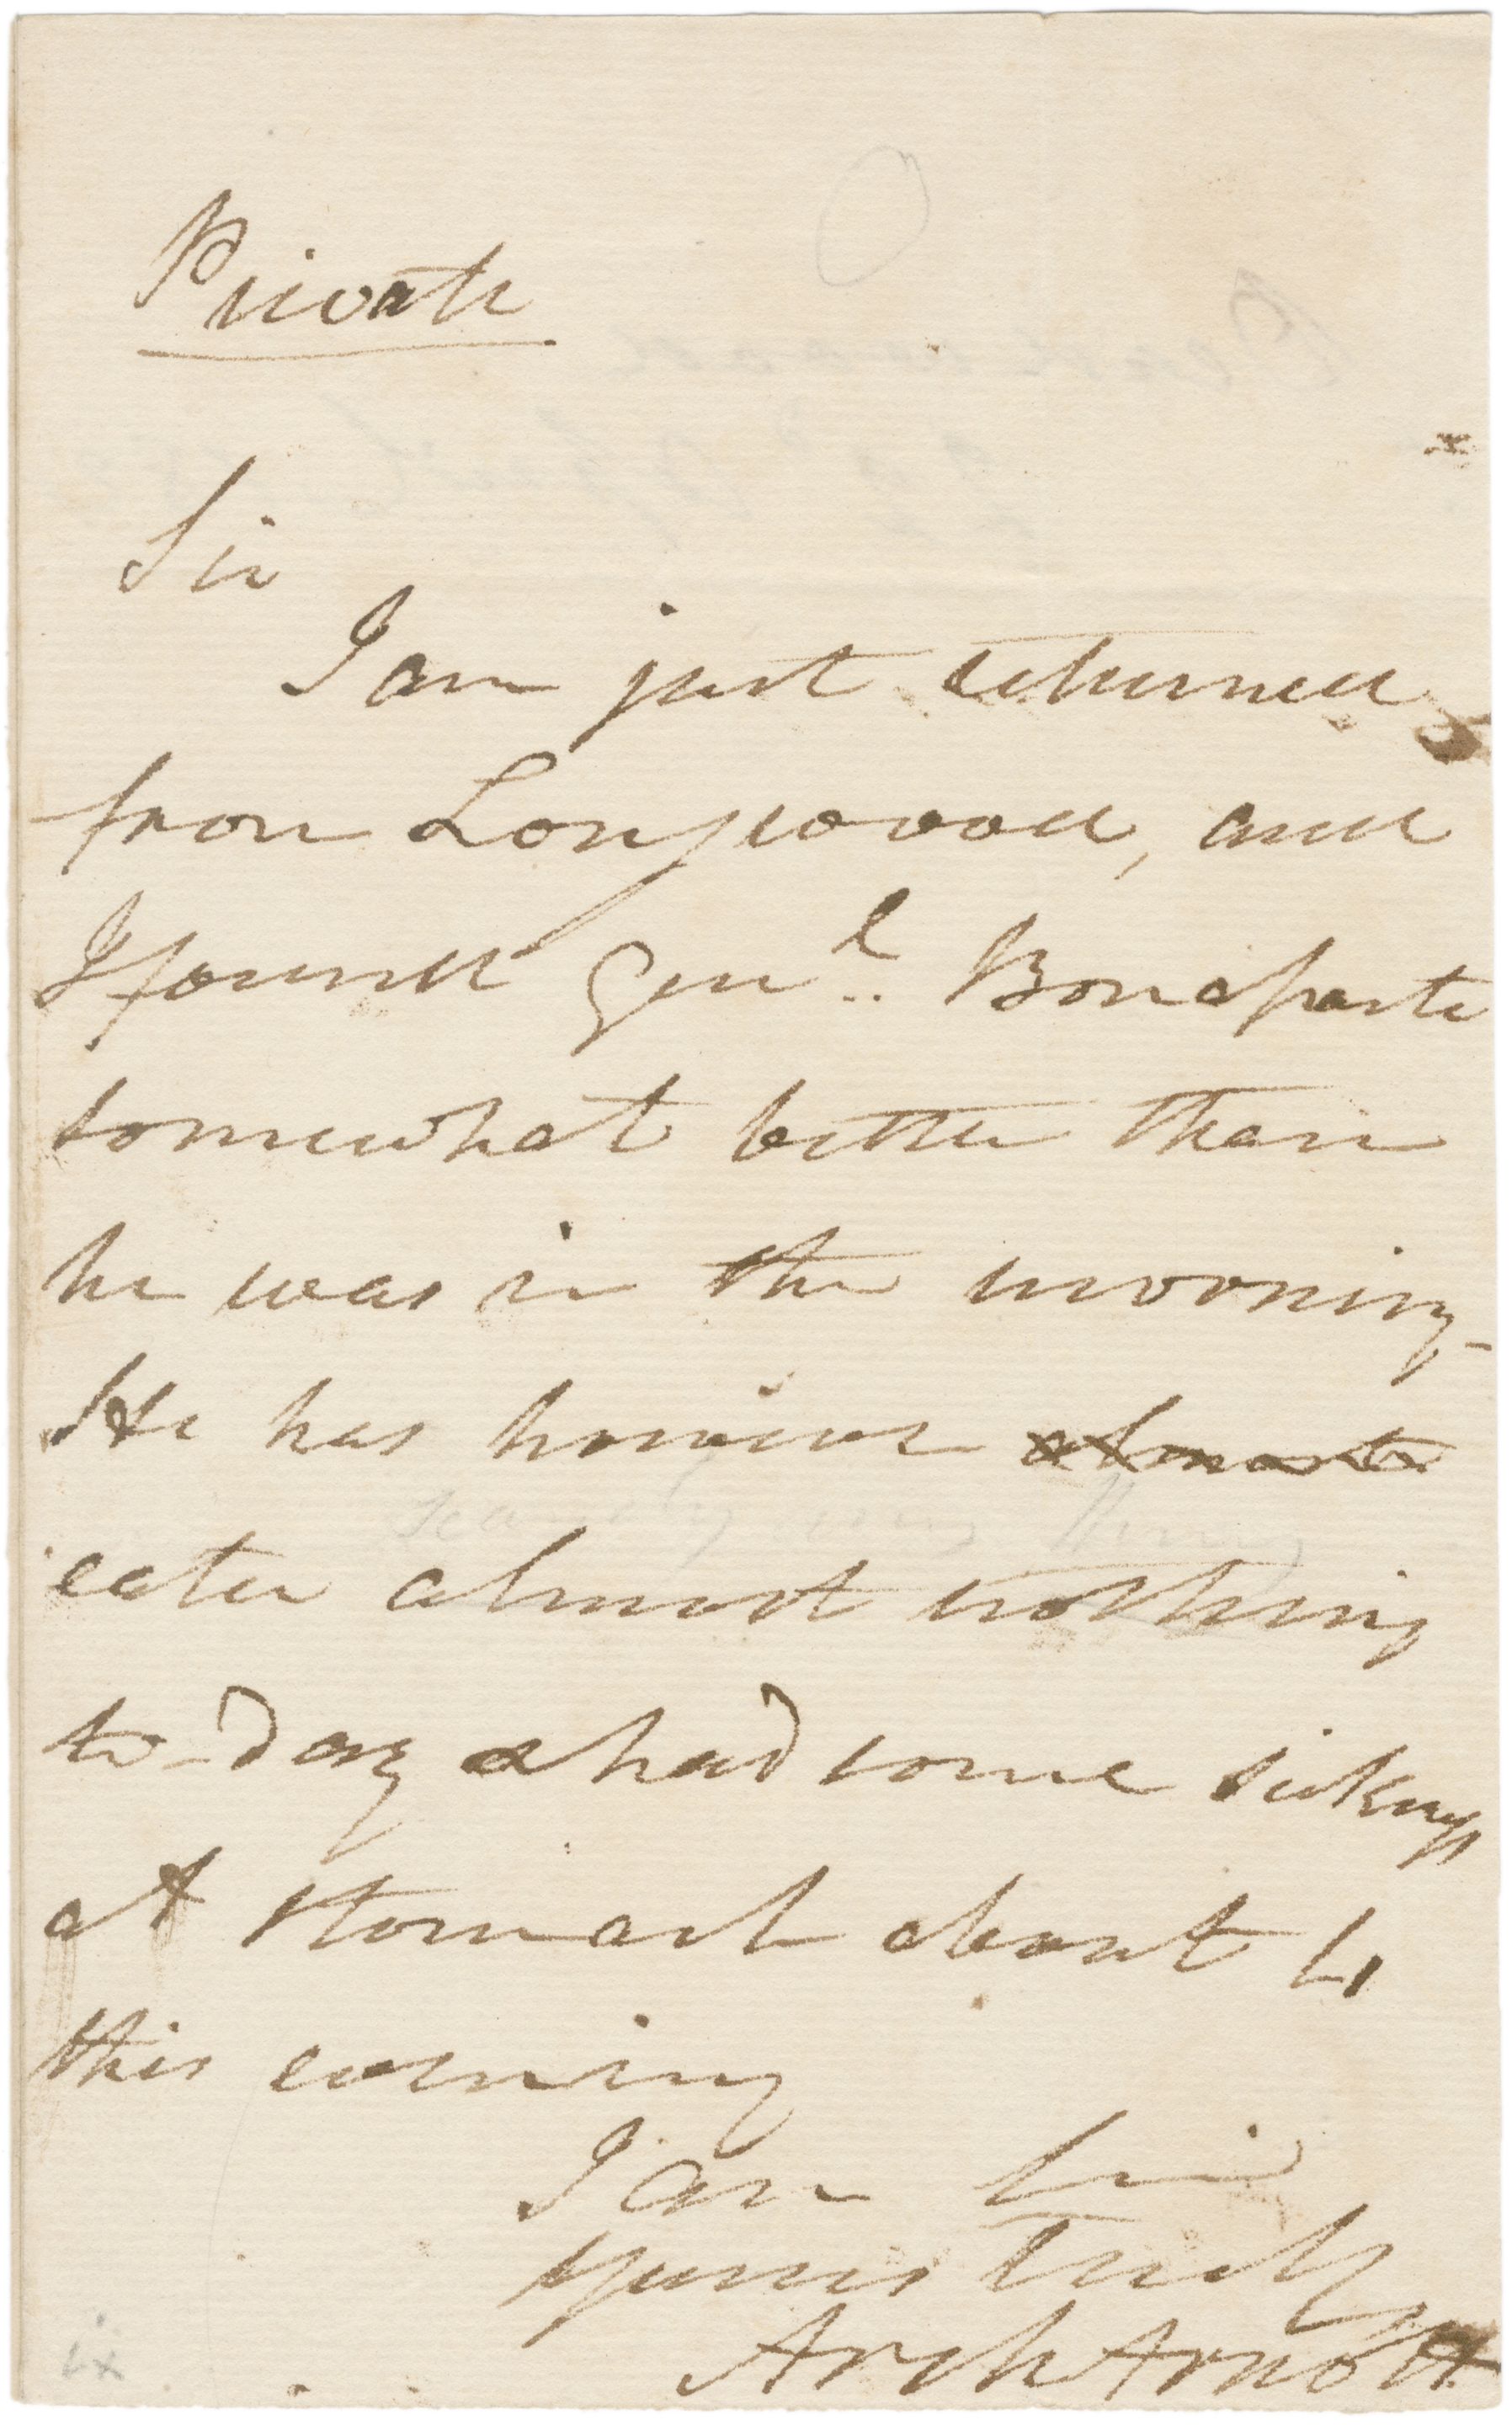 Private
Sir
I am just returned
from Longwood, and
I found Genl. Bonaparte
somewhat better than
he was in the morning-
He has however almost
scarcely any thing
eaten almost nothing
to-day & had some sickness
at stomach about 4
this evening
I am Sir
yours Truly
Arch Arnott
ix